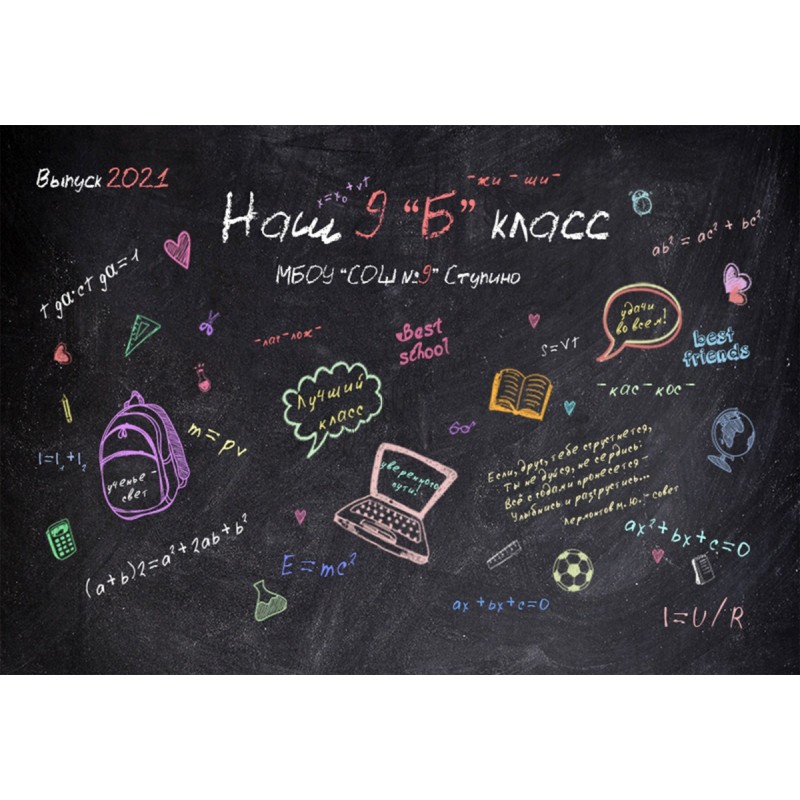 Выпуск 2021
x=x₀+vt
-жи-ши-
Наш 9 “Б” класс
МБОУ “СОШ №9” Ступино
ab² = ac² + bc²
+ gα·c+gα=1
-лаг-лож-
Best
school
s=vt
удачи
во всем!
best
friends
Лучший
класс
-кас-кос-
m=pv
I=I₁+I₂
ученье -
свет
уверенного
пути!
Если, друг, тебе сгрустнется,
Ты не дуйся, не сердись:
Всё с годами пронесется -
Улыбнись и разгрустись...
Лермонтов м. Ю. - совет
ax²+bx+c=0
(a+b)2=a²+2ab+b²
E=mc²
ax+bx+c=0
I=U/R